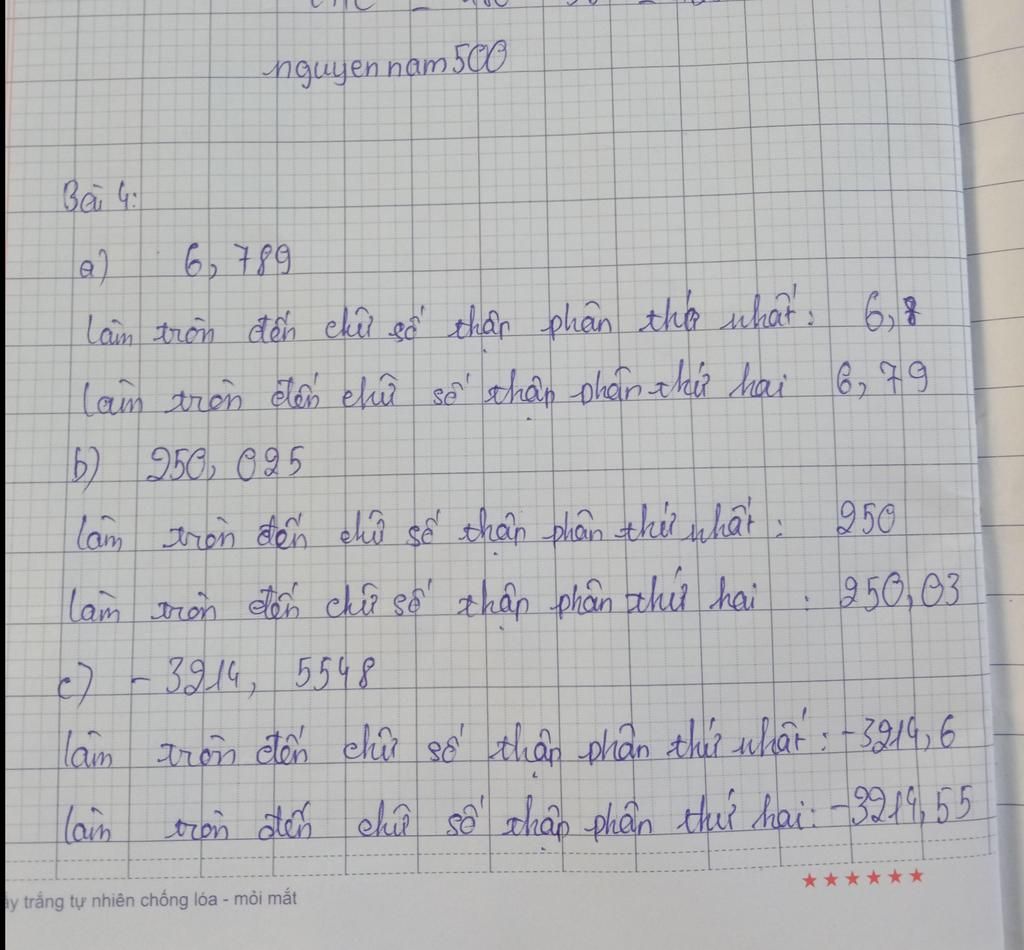 nguyennam500
Bài 4:
a) 6,789
làm tròn đến chữ số thập phân thứ nhất: 6,8
làm tròn đến chữ số thập phân thứ hai 6,79
b) 250,025
làm tròn đến chữ số thập phân thứ nhất: 250
làm tròn đến chữ số thập phân thứ hai . 250,03
c) -3214, 5548
làm tròn đến chữ số thập phân thứ nhất: -3214,6
làm tròn đến chữ số thập phân thứ hai: -3214,55
trắng tự nhiên chống lóa - mỏi mắt